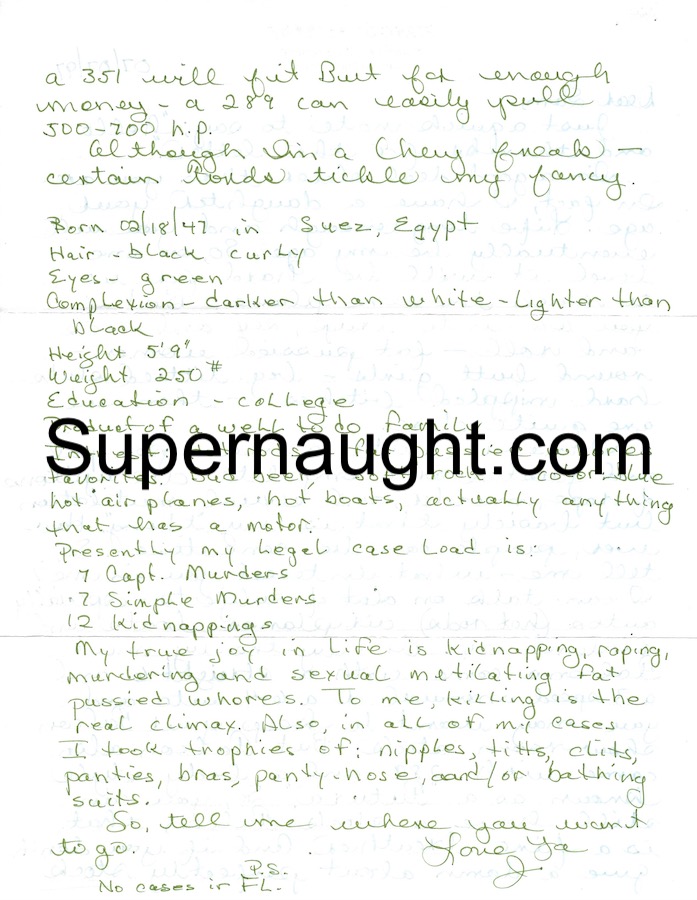 a 351 will fit But for enough
money - a 289 can easily pull
500-700 h.p.
Although I'm a Chevy freak -
certain Fords tickle my fancy.
Born 02/18/47 in Suez, Egypt
Hair - black curly
Eyes - green
Complexion - darker than white - Lighter than
black
Height 5'9"
Weight 250#
Education - college
Product of a well to do family
Supernaught.com
favorites: Bud beer, soft rock color blue
hot air planes, hot boats, actually any thing
that has a motor.
Presently my Legal case Load is:
7 Capt. Murders
7 Simple Murders
12 kidnappings
My true joy in Life is kidnapping, raping,
murdering and sexual metilating fat
pussied whores. To me, killing is the
real climax. Also, in all of my cases
I took trophies of: nipples, titts, clits,
panties, bras, panty-hose, aand/or bathing
suits.
So, tell me where you want
to go. Love Ya
J
P.S.
No cases in FL.